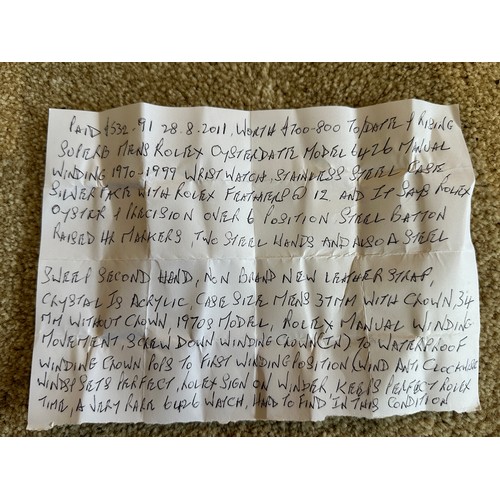 PAID $532.91 28.8.2011, WORTH $700-800 TO DATE & RISING
SUPERB MENS ROLEX OYSTERDATE MODEL 6426 MANUAL
WINDING 1970-1999 WRIST WATCH, STAINLESS STEEL CASE
SILVER FACE WITH ROLEX FEATHERS @ 12 AND IT SAYS "ROLEX
OYSTER & PRECISION OVER 6 POSITION STEEL BATTON
RAISED HR MARKERS, TWO STEEL HANDS AND ALSO A STEEL
SWEEP SECOND HAND, NON BRAND NEW LEATHER STRAP,
CRYSTAL IS ACRYLIC, CASE SIZE MENS 37MM WITH CROWN 34
MM WITHOUT CROWN, 1970S MODEL, ROLEX MANUAL WINDING
MOVEMENT, SCREW DOWN WINDING CROWN (IN) TO WATERPROOF
WINDING CROWN POPS TO FIRST WINDING POSITION (WIND ANTI CLOCKWISE
WINDS/SETS PERFECT, ROLEX SIGN ON WINDER, KEEPS PERFECT ROLEX
TIME, A VERY RARE 6426 WATCH, HARD TO FIND IN THIS CONDITION